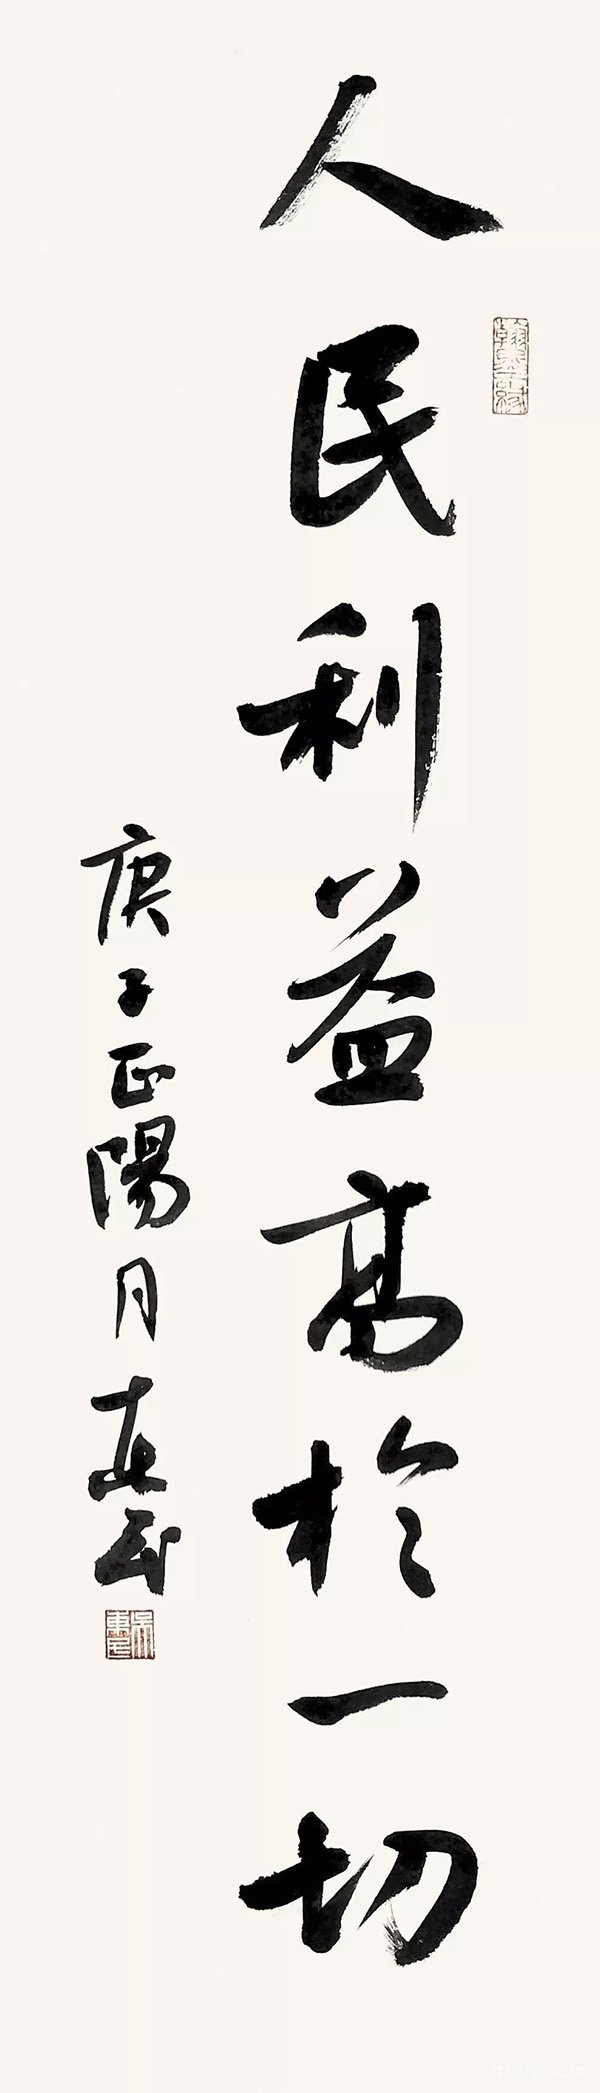 人民利益高於一切
庚子正陽月在民